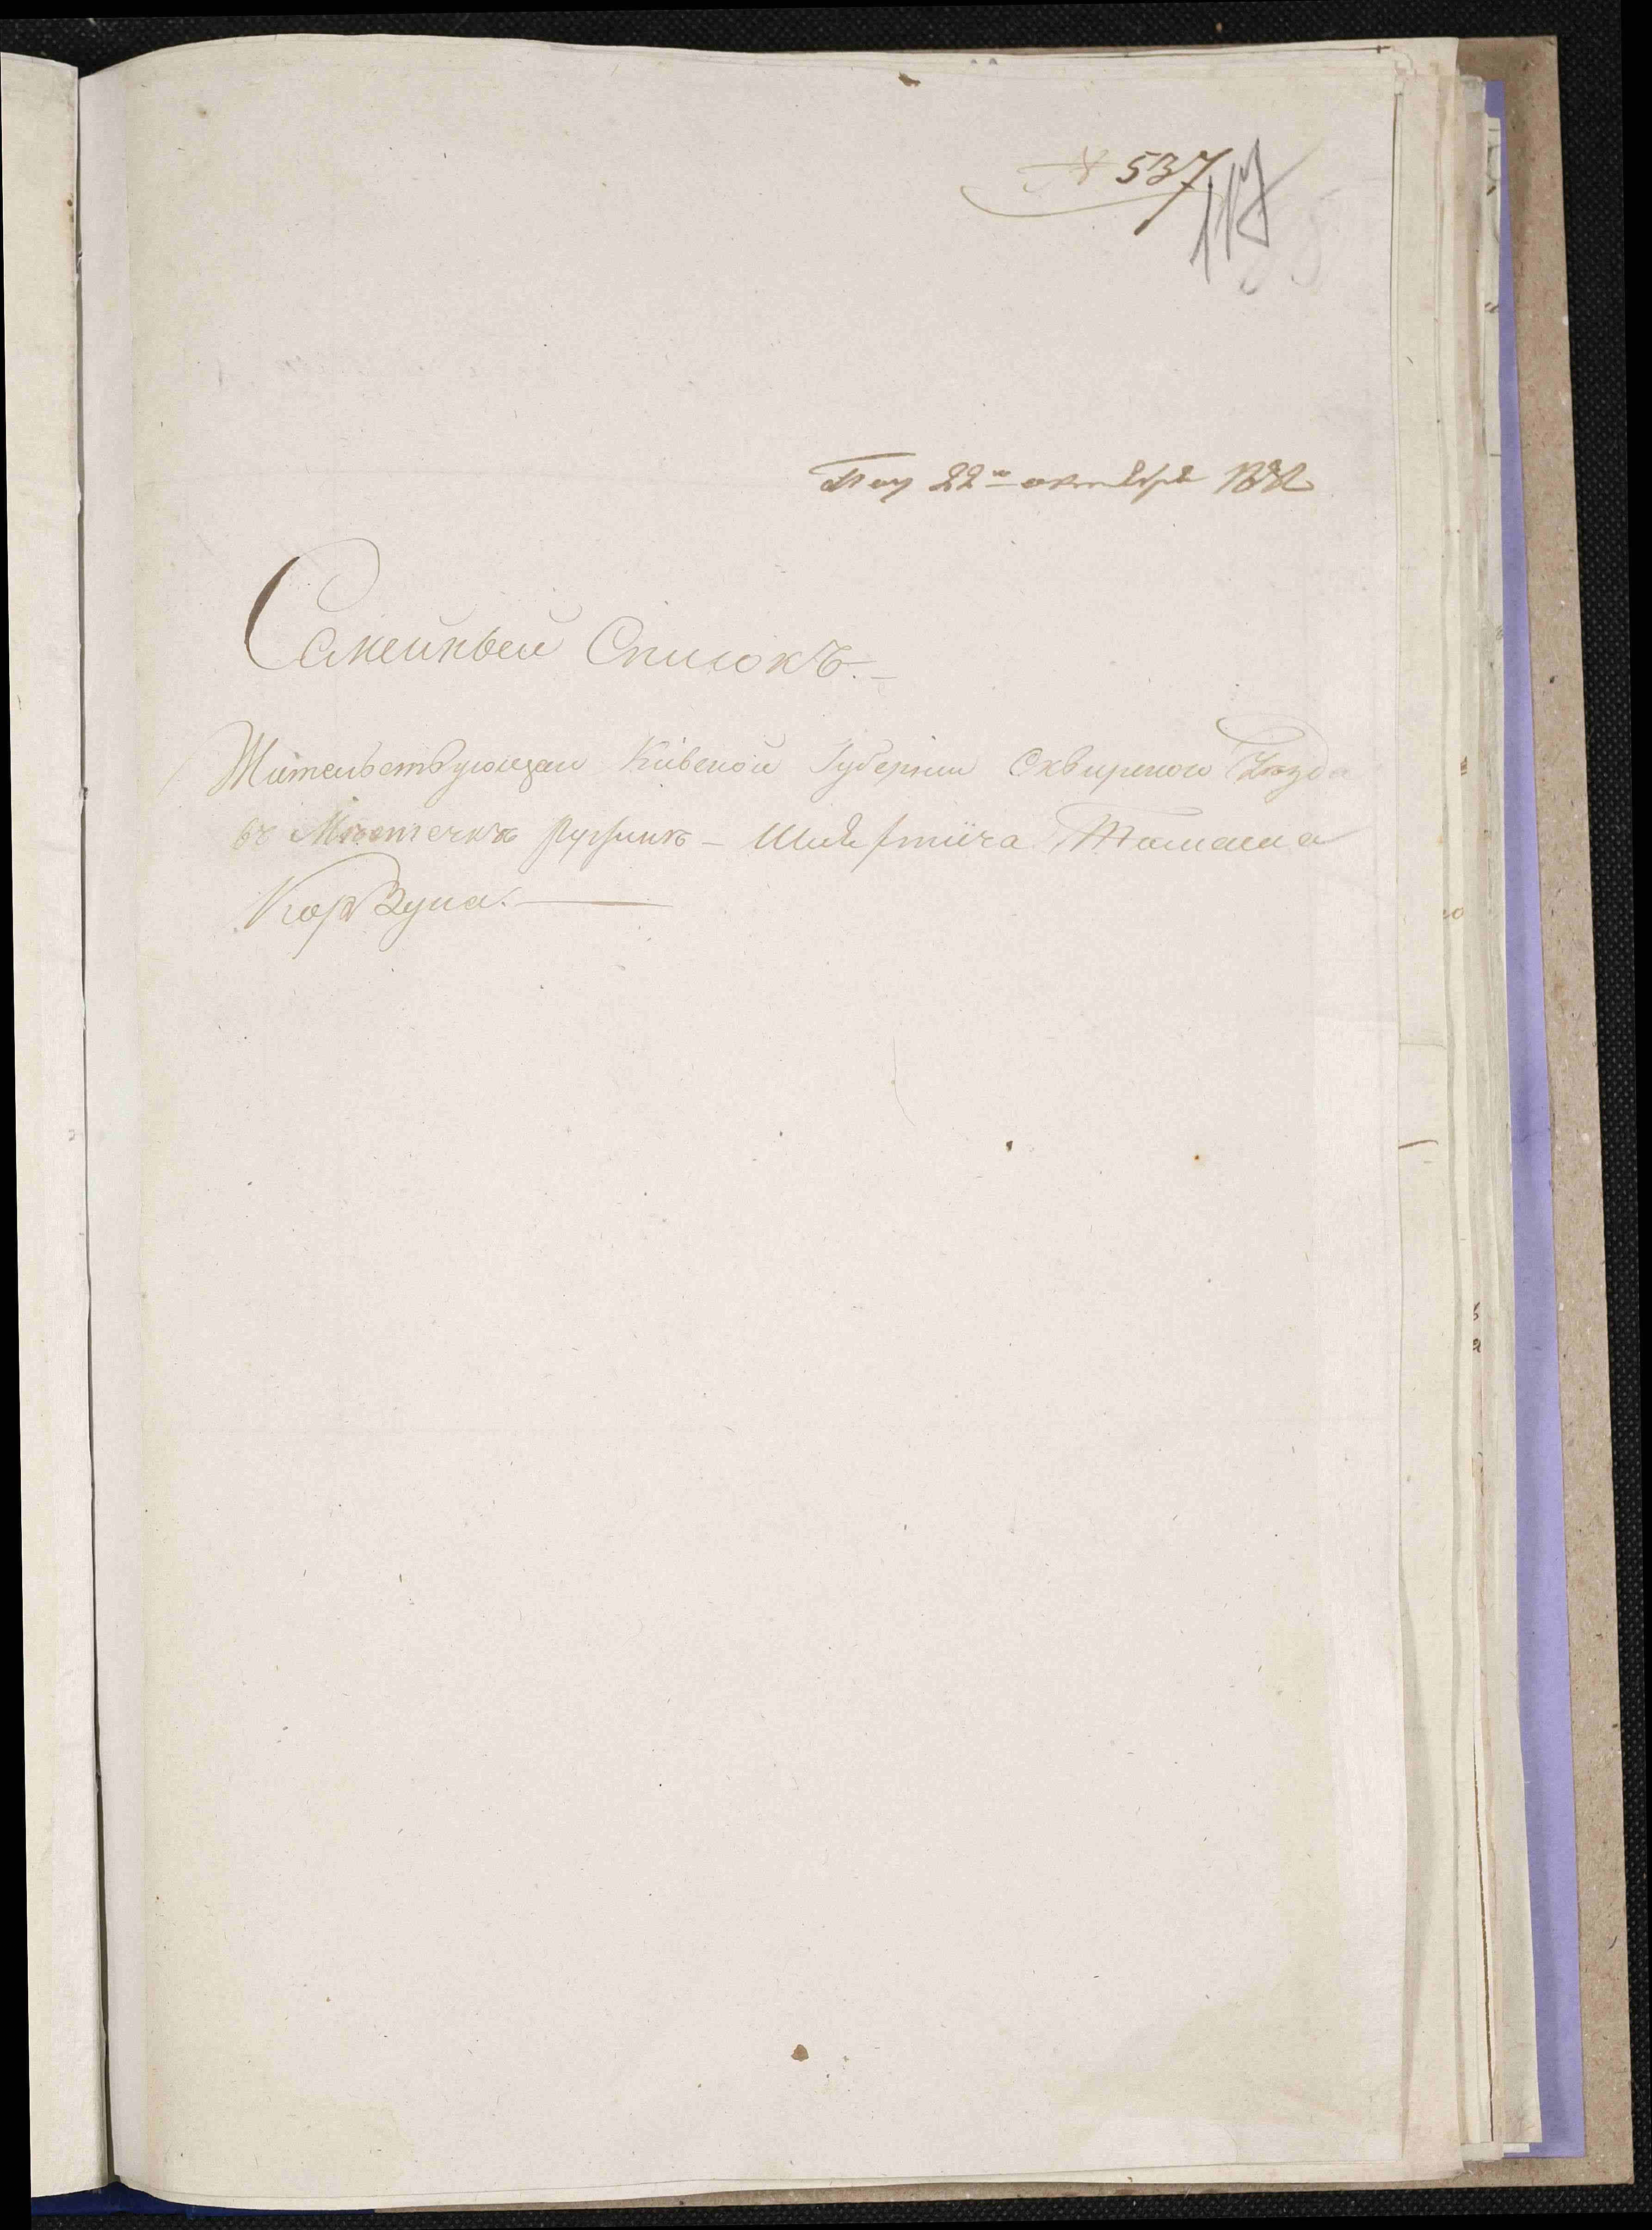 № 537
117
Пол 22го октября 1832
Семейный Списокъ.
Жительствующаго Кіевской Губерніи Сквирского Уѣзда
въ Мѣстечкѣ Ружинѣ – Шляхтича Томаша
Корзуна.